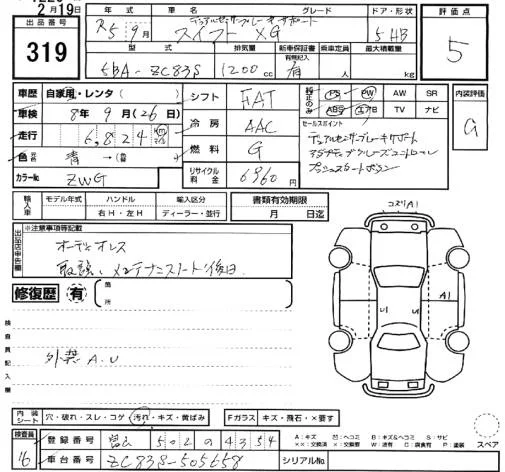 2月19日
出品番号
319
年式 車名 グレード ドア・形状 評価点
R5年9月 デュアルセンサーブレーキサポート
スイフト XG 5HB 5
型式 排気量 新車保証書 有無記入 乗車定員 最大積載量
5BA-ZC83S 1200cc 有 人 kg
車歴 自家用・レンタ( ) シフト FAT 純正のみ PS PW AW SR 内装評価
車検 8年9月(26日) 冷房 AAC ABS エアB TV ナビ G
走行 6,824 km マイル
セールスポイント
デュアルセンサーブレーキサポート
アダプティブクルーズコントロール
プッシュスタートボタン
色 元色 青→(青) 燃料 G
カラーNo ZWG リサイクル料金 6960円
輸入車 モデル年式 ハンドル 右H・左H 輸入区分 ディーラー・並行
書類有効期限 月 日迄
出品店申告欄
※注意事項等記載
オーディオレス
取説、メンテナンスノート後日
コスリA1
A1
修復歴 有 箇所
検査員記入欄
外装 A.U
内装シート 穴・破れ・スレ・コゲ 汚れ・キズ・黄ばみ Fガラス キズ・飛石・×要す
検査員 16
登録番号 502 4354
車台番号 ZC83S-505658 シリアルNo
A:キズ 凹:ヘコミ B:キズ&ヘコミ S:サビ
××:交換済 ×:要交換 W:波有 C:腐食有 P:塗装
スペア